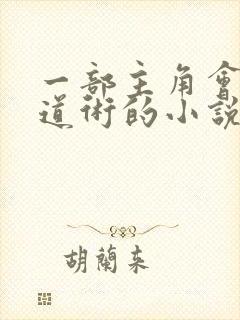 一部主角會
道術的小說
胡蘭來